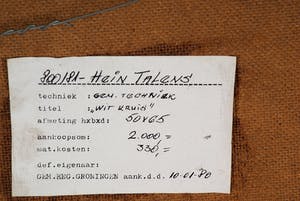 800181- Hein Talens
techniek : GEM. TECHNIEK
titel : "WIT KRUID"
afmeting hxbxd: 50x65
aankoopsom: 2.000,=
mat.kosten: 330,=
def.eigenaar:
GEM.ENG.GRONINGEN aank.d.d. 10-01-80